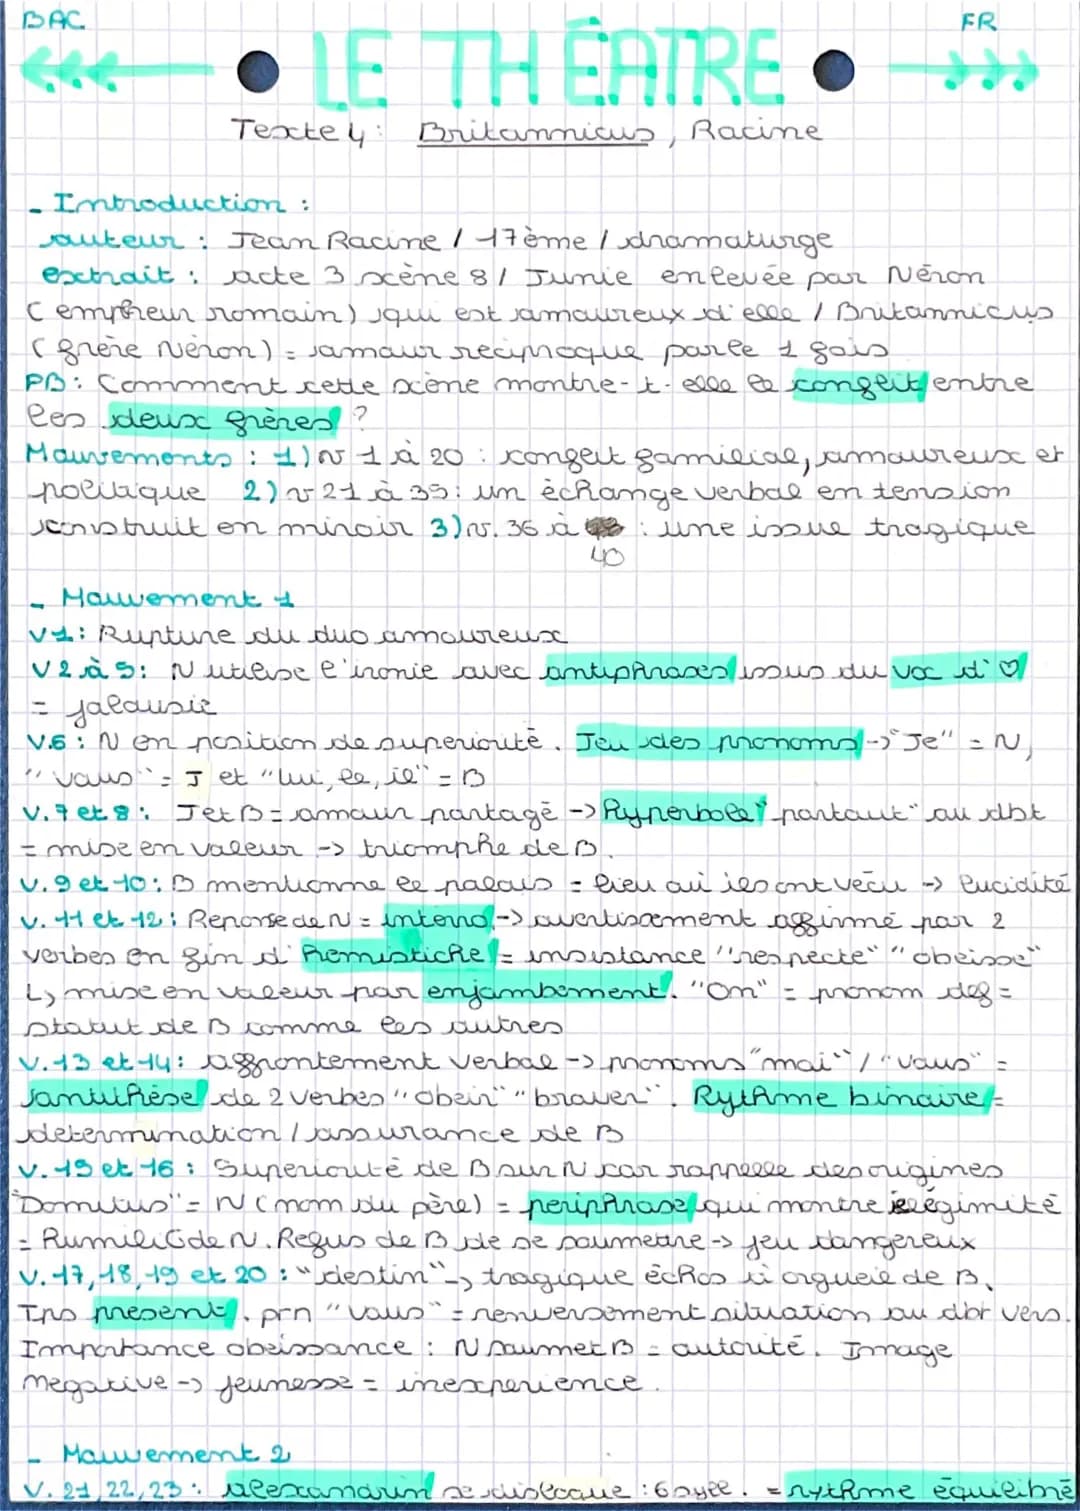 BAC FR
LE THÉATRE
Texte 4 : Britannicus, Racine
- Introduction :
auteur : Jean Racine / 17ème / dramaturge
extrait : acte 3 scène 8 / Junie enlevée par Néron
(empreur romain) qui est amoureux d'elle / Britannicus
(frère Néron) = amour reciproque parle 1 fois
PB : Comment cette scène montre-t-elle le conflit entre
les deux frères ?
Mouvements : 1) v 1 à 20 : conflit familial, amoureux et
politique 2) v 21 à 35 : un échange verbal en tension
construit en miroir 3) v. 36 à 40 : une issue tragique
- Mouvement 1
V1 : Rupture du duo amoureux
V2 à 5 : N utilise l'ironie avec antiphrases issus du voc d'♡
= jalousie
V.6 : N en position de superiorité. Jeu des pronoms -> "Je" = N,
"vous" = J et "lui, le, il" = B
V.7 et 8 : J et B = amour partagé -> Hyperbole "partout" au dbt
= mise en valeur -> triomphe de B.
V.9 et 10 : B mentionne le palais = lieu où ils ont vécu -> lucidité
V. 11 et 12 : Reponse de N = interro -> avertissement affirmé par 2
verbes en fin d'hemistiche = insistance "respecte" "obeisse"
↳ mise en valeur par enjambement. "On" = pronom def =
statut de B comme les autres
V.13 et 14 : affrontement verbal -> pronoms "moi" / "vous" =
antithèse de 2 verbes "obeir" "braver". Rythme binaire =
determination / assurance de B
V.15 et 16 : Superiorité de B sur N car rappelle des origines
"Domitus" = N (nom du père) = periphrase qui montre illégimité
= Humili de N. Refus de B de se soumettre -> jeu dangereux
V.17, 18, 19 et 20 : "destin" -> tragique échos à orgueil de B.
Tps present. prn "vous" = renversement situation au dbt vers.
Importance obeissance : N soumet B = autorité. Image
negative -> jeunesse = inexperience.
- Mouvement 2
V. 21, 22, 23 : alexandrin se disloque : 6 syll. = rythme équilibré